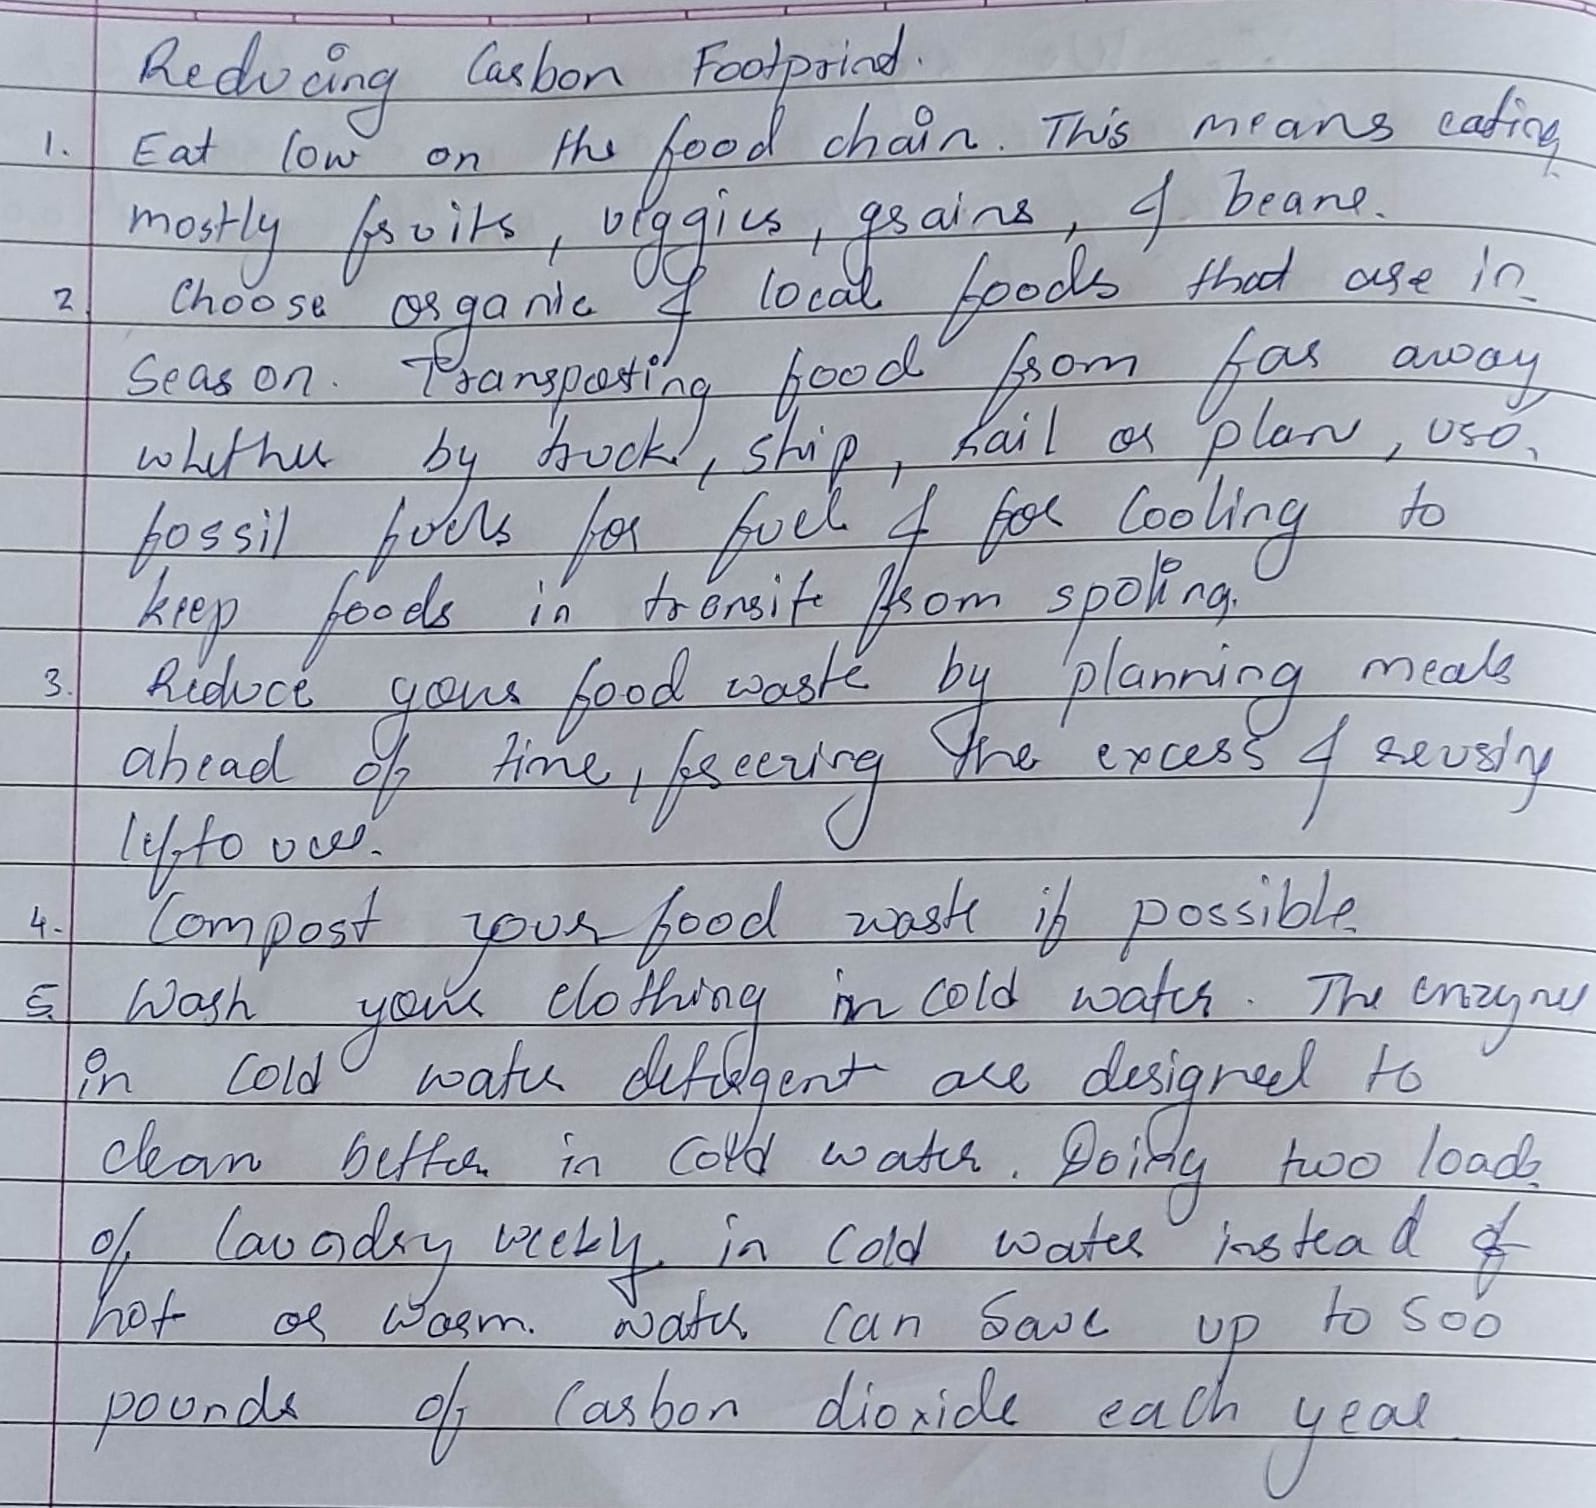 Reducing Carbon Footprint.
1. Eat low on the food chain. This means eating
mostly fruits, veggies, grains, & beans.
2. Choose organic & local foods that are in
season. Transporting food from far away
whether by truck, ship, rail or plan, use
fossil fuels for fuel & for cooling to
keep foods in transite from spoling.
3. Reduce your food waste by planning meals
ahead of time, freezing the excess & reusing
leftover.
4. Compost your food waste if possible.
5. Wash your clothing in cold water. The enzymes
in cold water detergent are designed to
clean better in cold water. Doing two loads
of laundry weekly in cold water instead of
hot or warm. water can save up to 500
pounds of carbon dioxide each year